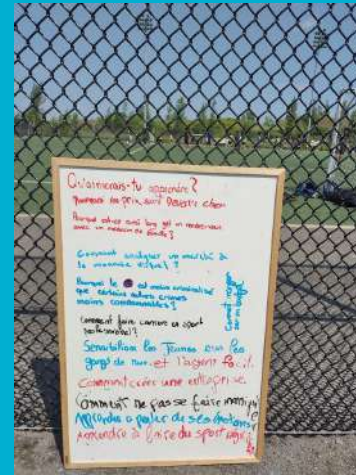 Qu'aimerais-tu apprendre?
Pourquoi les prix sont Devenir cher
Pourquoi est-ce aussi long get un rendez-vous
avec un médecin de famille?
Comment analyser un marché de
la monnaie virtuel?
Pourquoi le est moins criminalisé
que certains autres crimes
moins condamnables?
Comment manger
sur un budget
Comment faire carrière en sport
professionnel?
Sensibiliser les Jeunes aux
gangs de rue et l'argent facile
Comment créer une entreprise
Comment ne pas se faire
Apprendre a parler de ses émotions
Apprendre à faire du sport